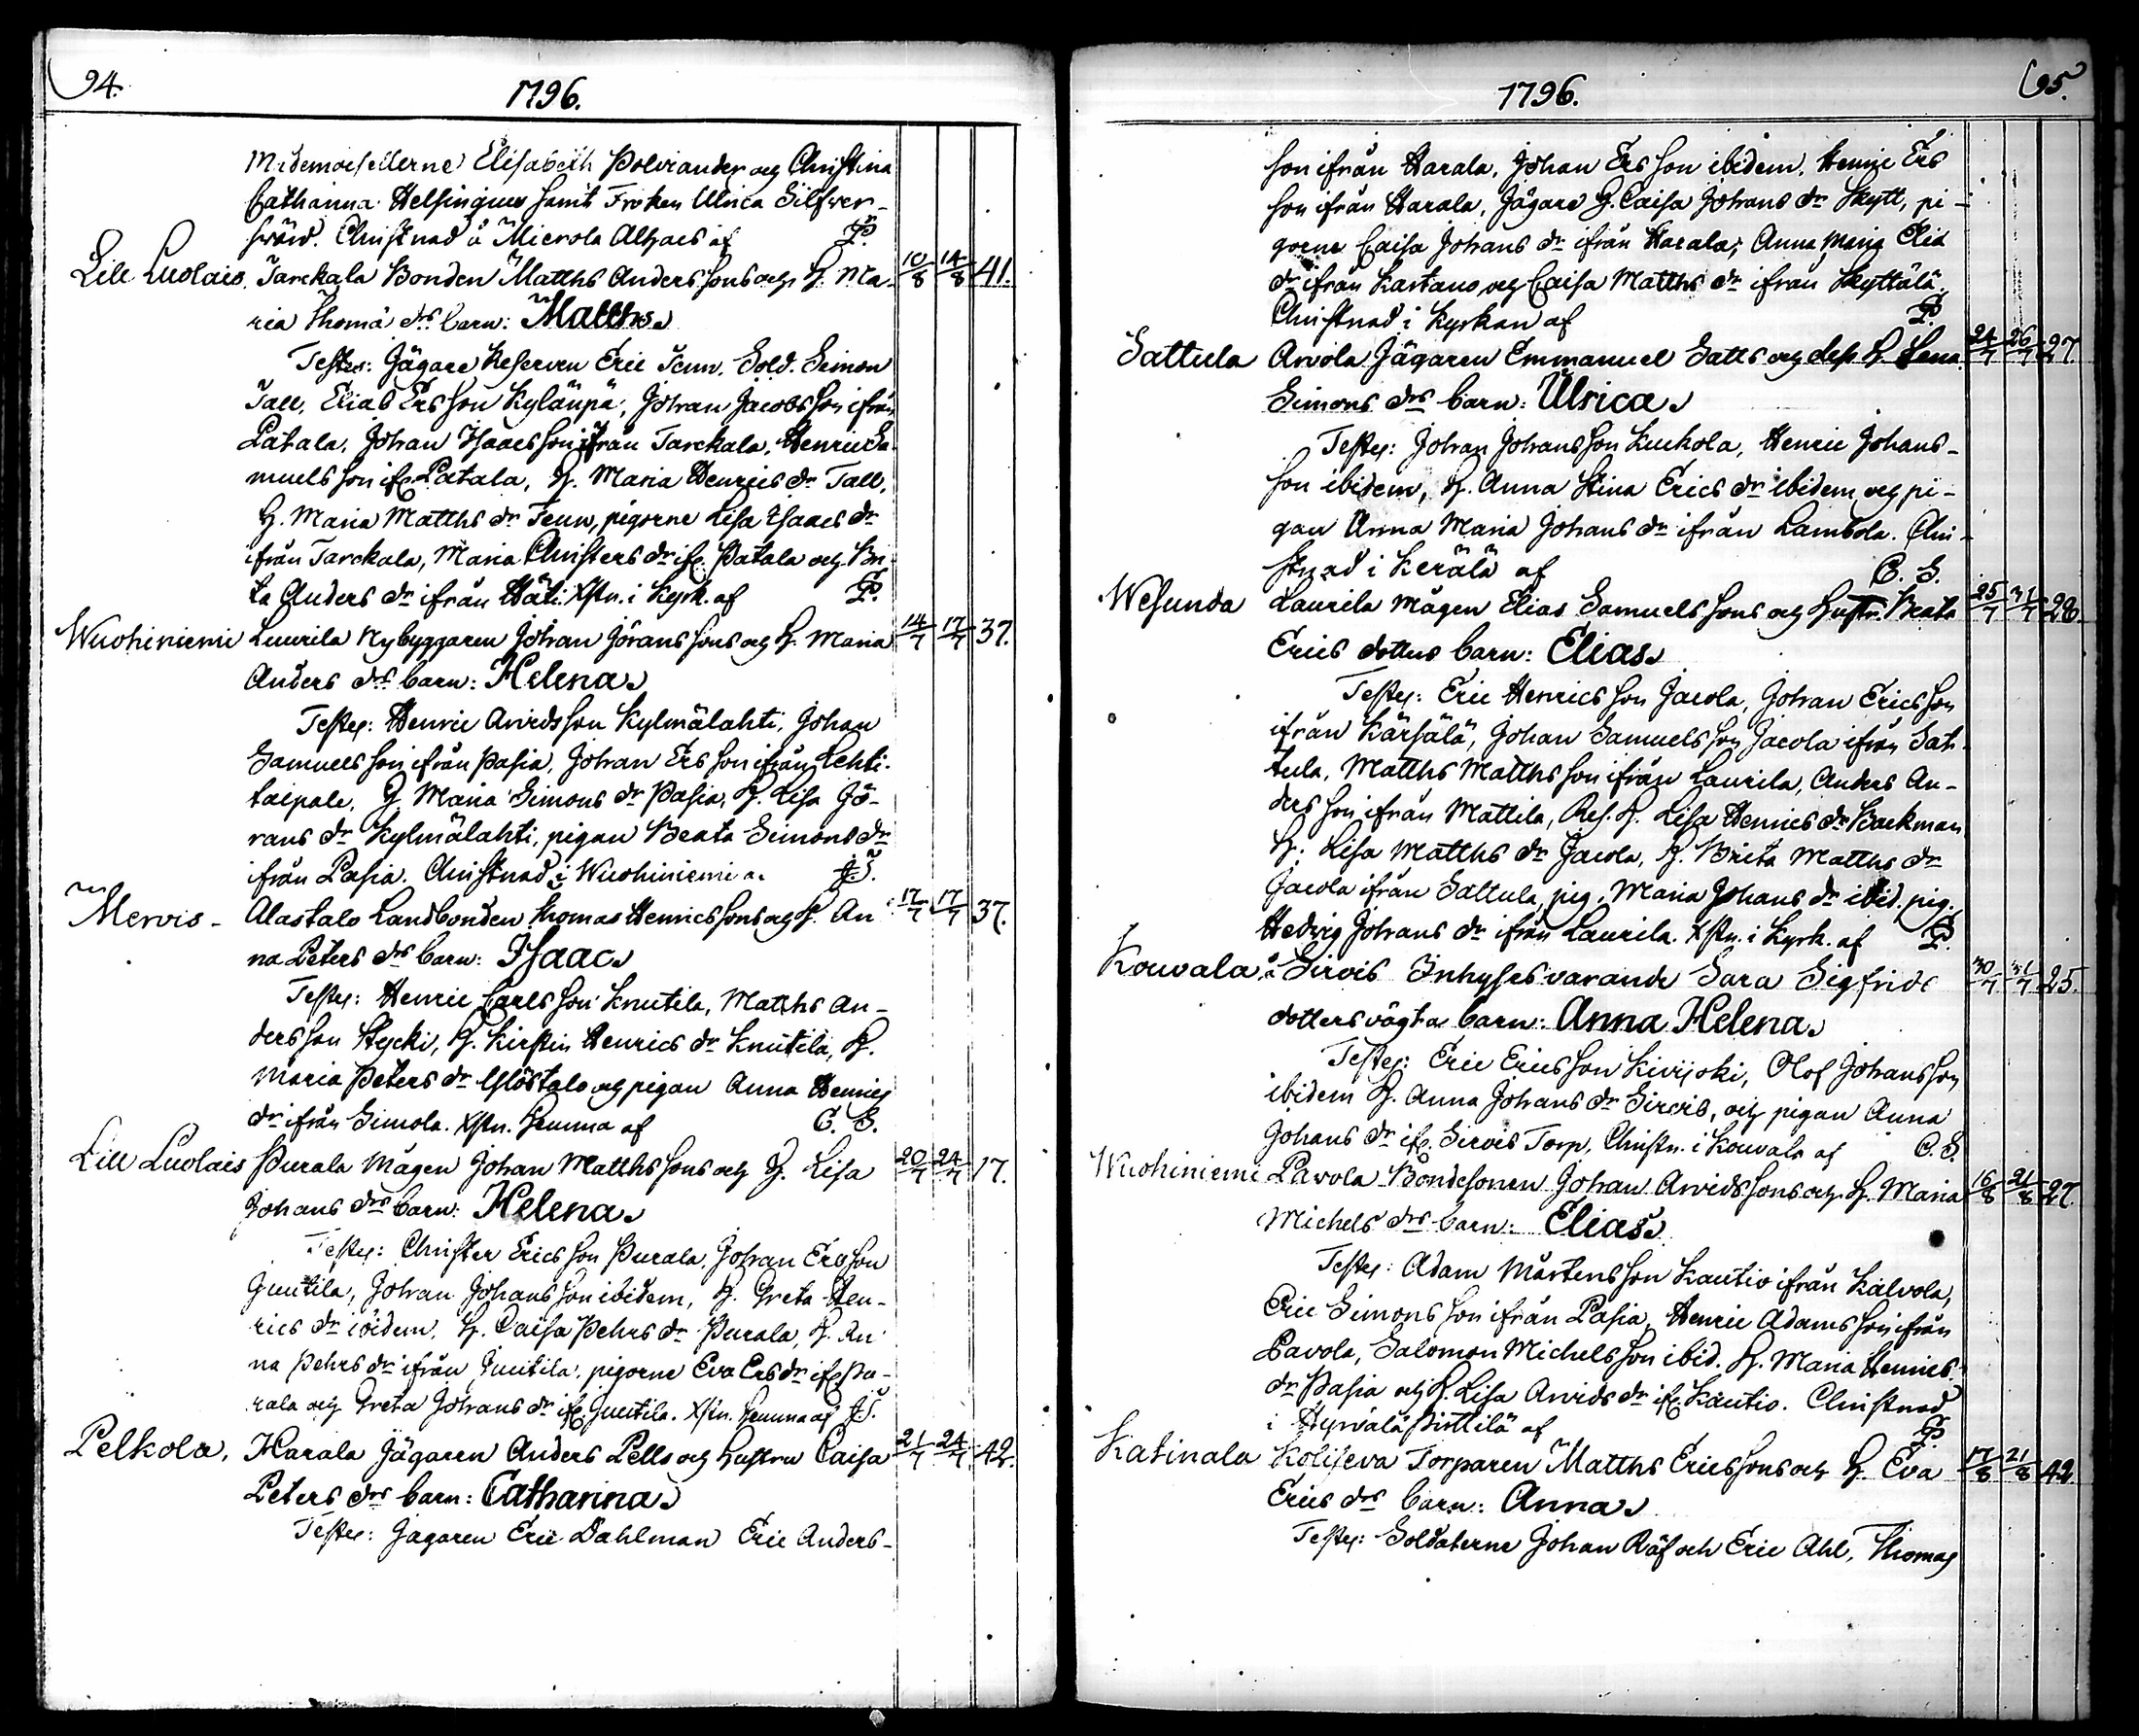 94.
1796.
Mademoisellerne Elisabeth Polviander och Christina
Catharina Helsingius samt Fröken Ulrica Silfver-
swärd. Christnad å Mierola Alhaes af P.
Lill Luolais. Tarckala Bonden Matths Anders sons och H. Ma- 10/8 14/8 41.
ria Thomæ drs barn: Matths.
Testes: Jägare Reserven Eric Tenn. Sold. Simon
Tall, Elias Ersson Kylänpä, Johan Jacobsson ifrån
Patala, Johan Isaacsson ifrån Tarckala, Henric Sa-
muelsson ifr. Patala, H. Maria Henrics dr Tall,
H. Maria Matths dr Tenn, pigorne Lisa Isaacs dr
ifrån Tarckala, Maria Christers dr ifr. Patala och Bri-
ta Anders dr ifrån Häti. Xstn. i Kyrk. af P.
Wuohiniemi Laurila Nybyggaren Johan Jöransons och H. Maria 14/7 17/7 37.
Anders drs barn: Helena.
Testes: Henric Arvidsson Kylmälahti, Johan
Samuelsson ifrån Pasia, Johan Ersson ifrån Lehti-
taipale, H. Maria Simons dr Pasia, H. Lisa Jö-
rans dr Kylmälahti, pigan Beata Simons dr
ifrån Pasia. Christnad i Wuohiniemi a.
Mervis - Alastalo Landbonden Thomas Henricssons och H. An- 17/7 17/7 37.
na Peters drs barn: Isaac.
Testes: Henric Carlsson Knutila, Matths An-
dersson Stycki, H. Kirstin Henrics dr Knutila, H.
Maria Peters dr Ylöstalo och pigan Anna Henrics
dr ifrån Simola. Xstn. hemma af C. G.
Lill Luolais Purala Mågen Johan Matthssons och H. Lisa 20/7 24/7 17.
Johans drs barn: Helena.
Testes: Christer Ericsson Purala, Johan Ersson
Juutila, Johan Johansson ibidem, H. Greta Hen-
rics dr ibidem, H. Caisa Pehrs dr Purala, H. An-
na Pehrs dr ifrån Juutila, pigorne Eva Ers dr ifr. Pu-
rala och Greta Johans dr ifr. Juutila. Xstn. hemma af
Pelkola. Harala Jägaren Anders Pells och hustru Caisa 21/7 24/7 42.
Peters drs barn: Catharina.
Testes: Jägaren Eric Dahlman Eric Anders-
95.
1796.
son ifrån Harala, Johan Ersson ibidem, Henric Ers
son ifrån Harala, Jägare H. Caisa Johans dr Skytt, pi-
gorne Caisa Johans dr ifrån Harala, Anna Maria Eliæ
dr ifrån Kartano, och Caisa Matths dr ifrån Skyttälä.
Christnad i Kyrkan af P.
Sattula Arvola Jägaren Emmanuel Satts och dess H. Lena 24/7 26/7 27.
Simons drs barn: Ulrica.
Testes: Johan Johansson Kuckola, Henric Johans-
son ibidem, H. Anna Stina Erics dr ibidem och pi-
gan Anna Maria Johans dr ifrån Lambola. Chri-
stnad i Kerälä af C. G.
Wesunda Laurila Mågen Elias Samuelssons och Hustr. Beata 25/7 31/7 28.
Erics dotters barn: Elias.
Testes: Eric Henricsson Jacola, Johan Ericsson
ifrån Kärsälä, Johan Samuelsson Jacola ifrån Sat-
tula, Matths Matthsson ifrån Laurila, Anders An-
dersson ifrån Mattila, Res. H. Lisa Henrics dr Backman
H. Lisa Matths dr Jacola, H. Brita Matths dr
Jacola ifrån Sattula, pig. Maria Johans dr ibid. pig.
Hedvig Johans dr ifrån Laurila. Xstn. i Kyrk. af P.
Kouvala å Sirvis Inhyses varande Sara Sigfrids 30/7 31/7 25.
dotters oägta barn: Anna Helena.
Testes: Eric Ericsson Kivijoki, Olof Johansson
ibidem H. Anna Johans dr Sirvis, och pigan Anna
Johans dr ifr. Sirvis Torp, Christn. i Kouvala af C. G.
Wuohiniemi Pavola Bondesonen Johan Arvidssons och H. Maria 16/8 21/8 27.
Michels drs barn: Elias.
Testes: Adam Mårtensson Kautio ifrån Kalvola,
Eric Simonsson ifrån Pasia, Henric Adamsson ifrån
Pavola, Salomon Michelsson ibid. H. Maria Henrics
dr Pasia och H. Lisa Arvids dr ifr. Kautio. Christnad
i Hyrvälä Pirttilä af P.
Katinala Kolijeva Torparen Matths Ericssons och H. Eva 17/8 21/8 42
Erics drs barn: Anna.
Testes: Soldaterne Johan Räf och Eric Ahl, Thomas